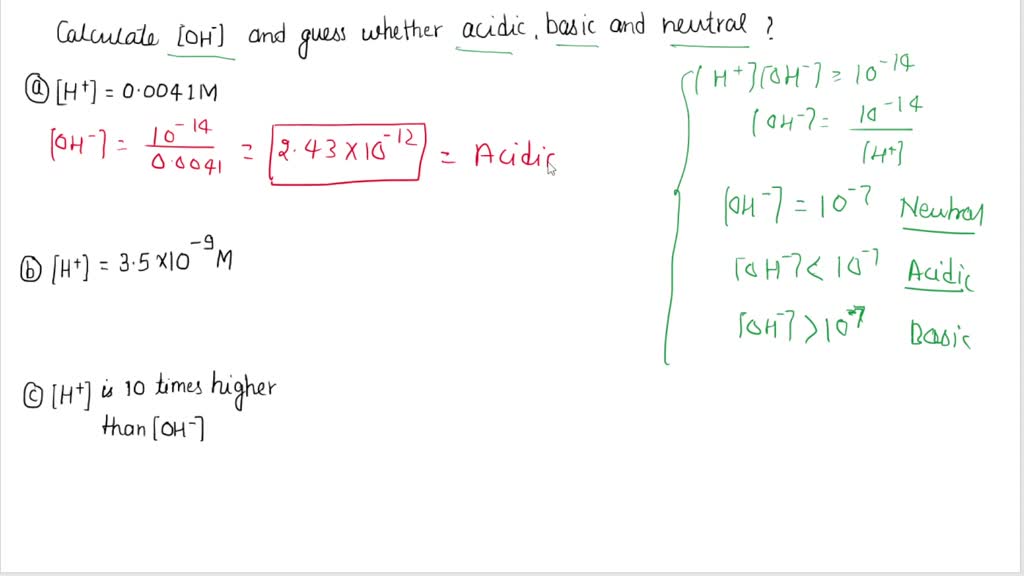 Calculate [OH⁻] and guess whether acidic, basic and neutral ?
ⓐ [H⁺] = 0.0041M
[OH⁻] = 10⁻¹⁴ / 0.0041 = 2.43 × 10⁻¹² = Acidic
ⓑ [H⁺] = 3.5 × 10⁻⁹ M
ⓒ [H⁺] is 10 times higher
than [OH⁻]
[H⁺][OH⁻] = 10⁻¹⁴
[OH⁻] = 10⁻¹⁴ / [H⁺]
[OH⁻] = 10⁻⁷ Neutral
[OH⁻] < 10⁻⁷ Acidic
[OH⁻] > 10⁻⁷ Basic